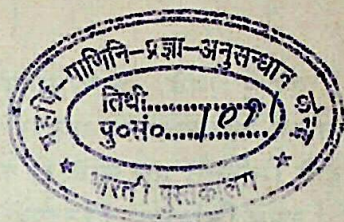 महर्षि-पाणिनि-प्रज्ञा-अनुसन्धान केन्द्र
तिथी..............
पु०सं०.....1091
* भारती पुस्तकालय *